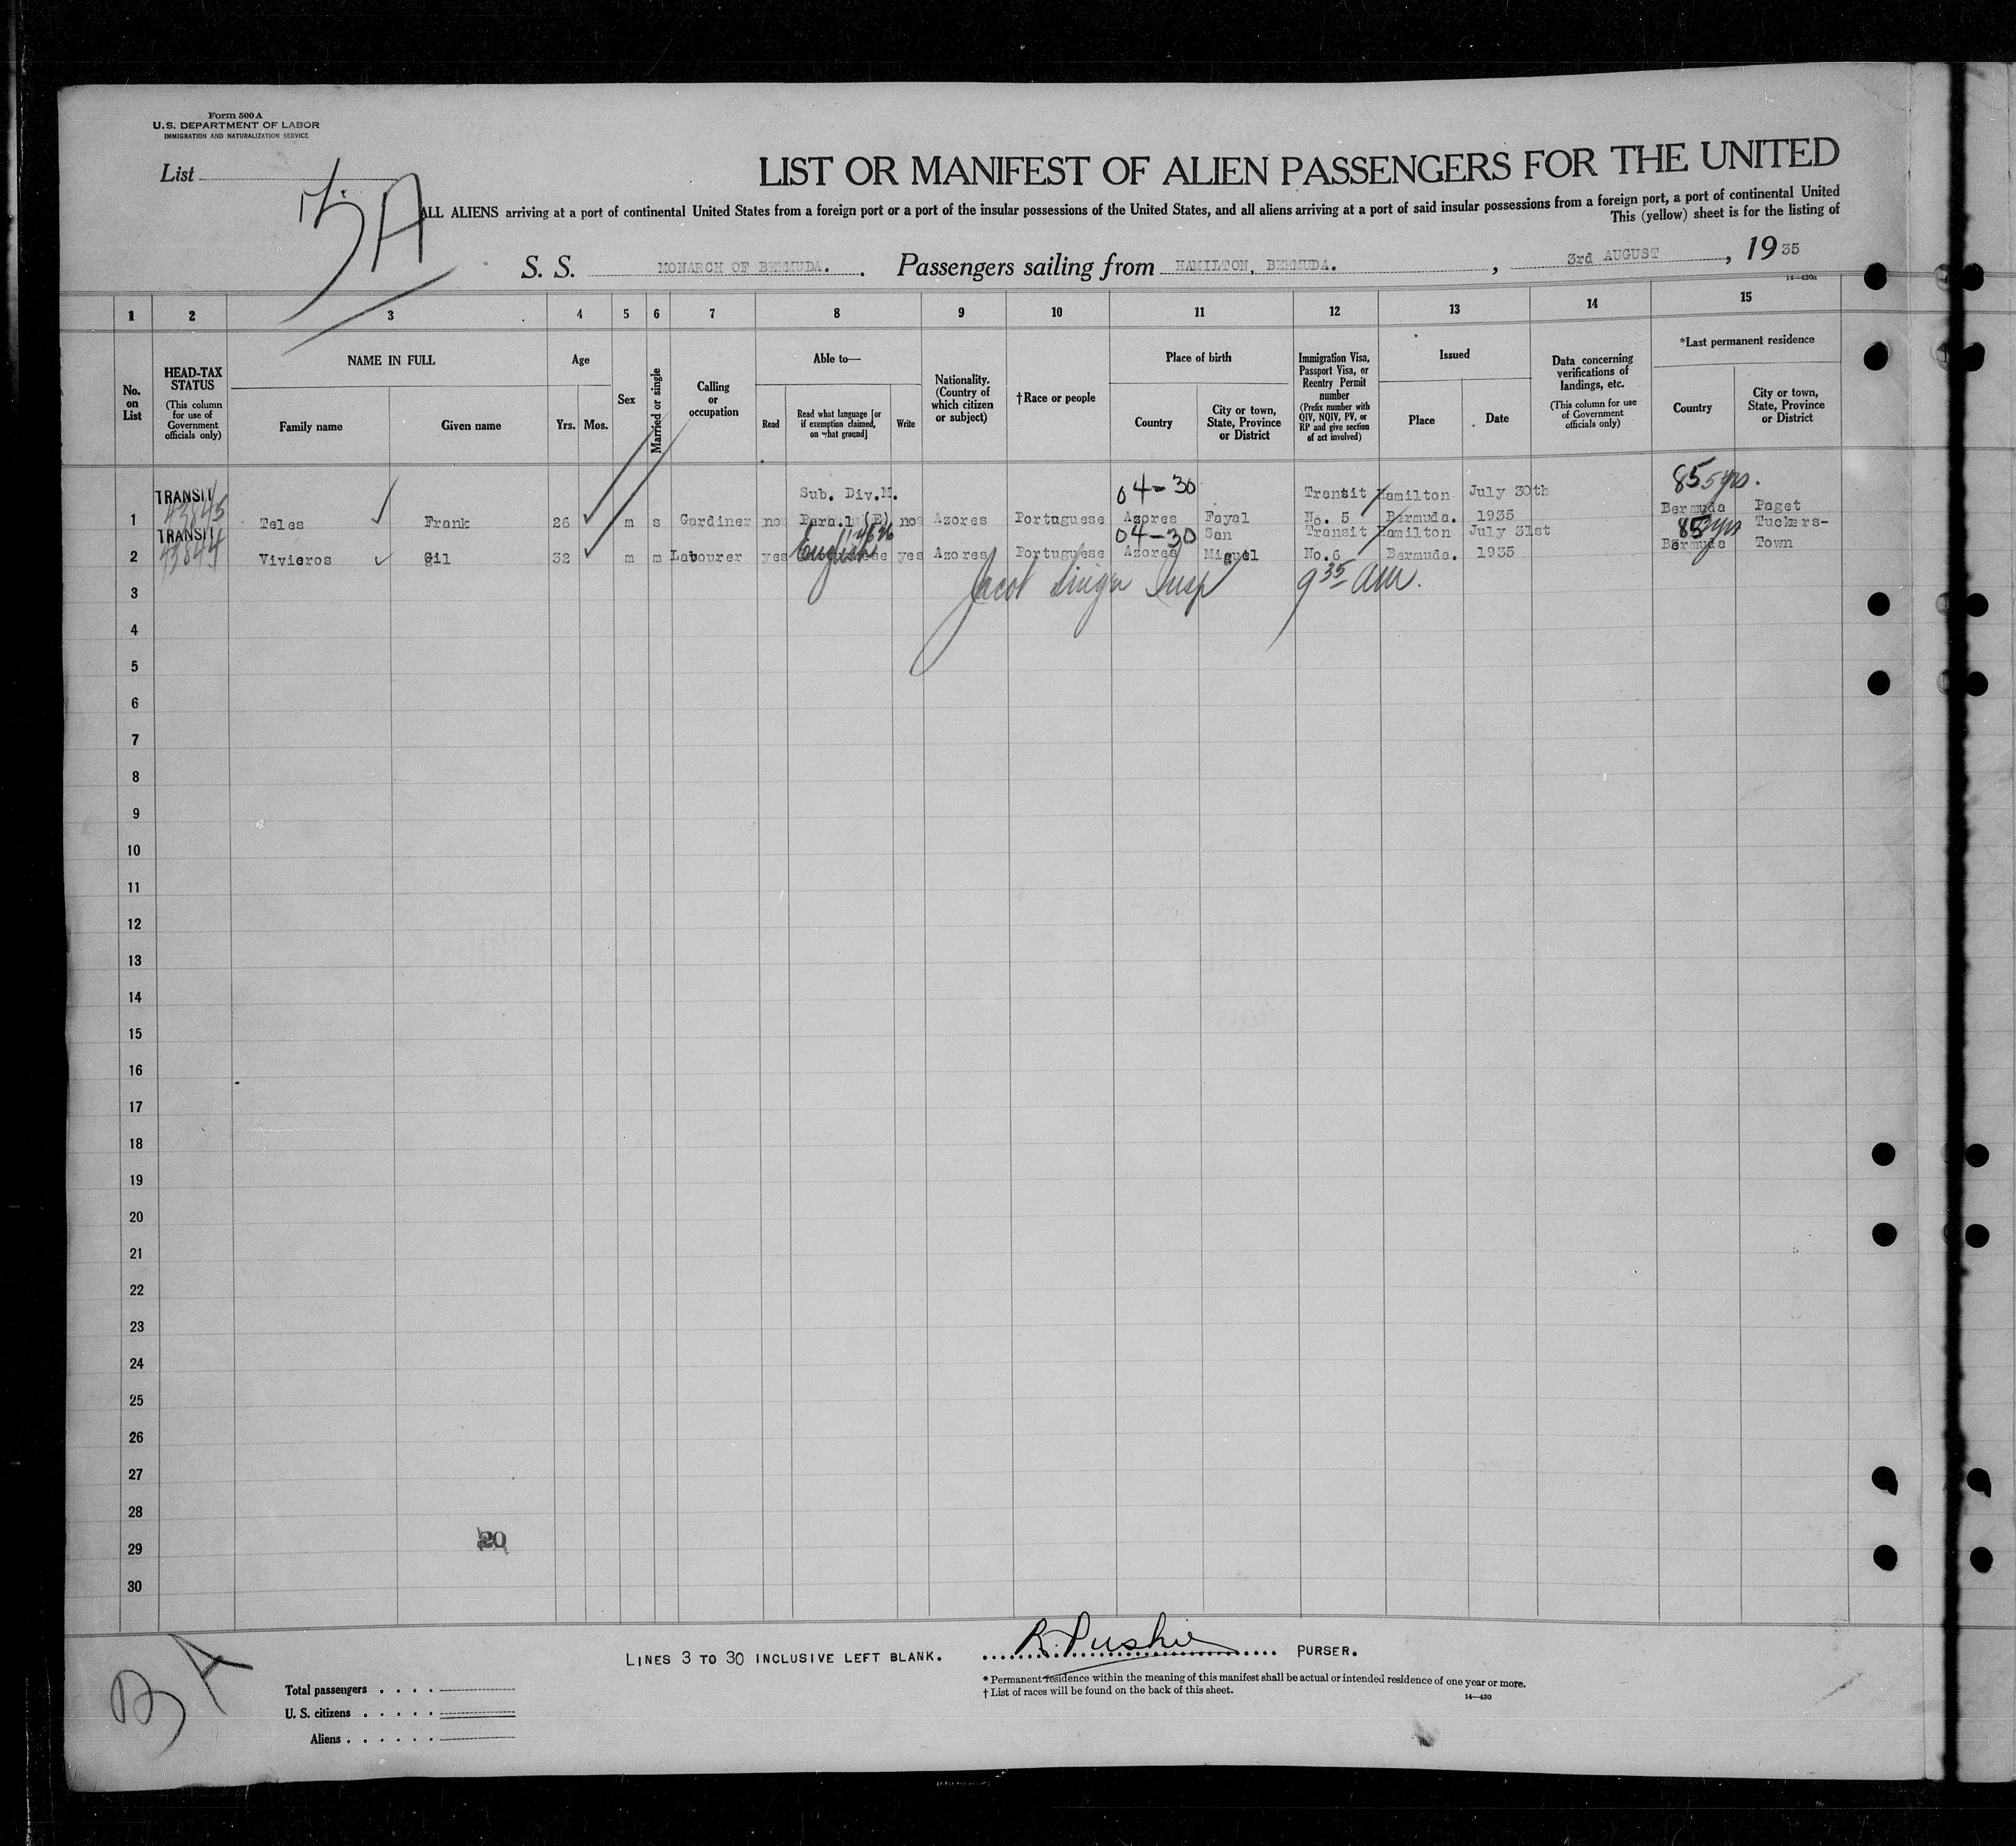 Form 500 A
U.S. DEPARTMENT OF LABOR
IMMIGRATION AND NATURALIZATION SERVICE
List
5A
LIST OR MANIFEST OF ALIEN PASSENGERS FOR THE UNITED
ALL ALIENS arriving at a port of continental United States from a foreign port or a port of the insular possessions of the United States, and all aliens arriving at a port of said insular possessions from a foreign port, a port of continental United
This (yellow) sheet is for the listing of
S. S. MONARCH OF BERMUDA. Passengers sailing from HAMILTON, BERMUDA. , 3rd AUGUST , 1935
14—430a
1 2 3 4 5 6 7 8 9 10 11 12 13 14 15
No. on List
HEAD-TAX STATUS (This column for use of Government officials only)
NAME IN FULL
Family name
Given name
Age
Yrs. Mos.
Sex
Married or single
Calling or occupation
Able to—
Read
Read what language [or if exemption claimed, on what ground]
Write
Nationality. (Country of which citizen or subject)
†Race or people
Place of birth
Country
City or town, State, Province or District
Immigration Visa, Passport Visa, or Reentry Permit number (Prefix number with QIV, NQIV, PV, or RP and give section of act involved)
Issued
Place
Date
Data concerning verifications of landings, etc. (This column for use of Government officials only)
*Last permanent residence
Country
City or town, State, Province or District
TRANSIT Sub. Div.M. 04-30 Transit Hamilton July 30th 85 5yrs.
1 43845 Teles Frank 26 m s Gardiner no Para.1 (E) no Azores Portuguese Azores Fayal No. 5 Bermuda. 1935 Bermuda Paget
TRANSIT 04-30 San Transit Hamilton July 31st 85 yrs Tuckers-
2 43844 Vivieros Gil 32 m m Labourer yes English yes Azores Portuguese Azores Miguel No.6 Bermuda. 1935 Bermuda Town
3 Jacob Singer Insp 9 35 am.
4
5
6
7
8
9
10
11
12
13
14
15
16
17
18
19
20
21
22
23
24
25
26
27
28
20
29
30
LINES 3 TO 30 INCLUSIVE LEFT BLANK. R. Pushie PURSER.
* Permanent residence within the meaning of this manifest shall be actual or intended residence of one year or more.
† List of races will be found on the back of this sheet.
14—430
Total passengers
U. S. citizens
Aliens